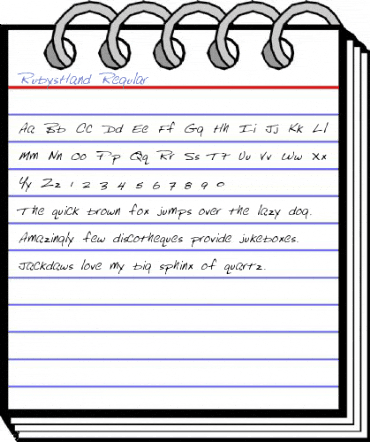 RubysHand Regular
Aa Bb Cc Dd Ee Ff Gg Hh Ii Jj Kk Ll
Mm Nn Oo Pp Qq Rr Ss Tt Uu Vv Ww Xx
Yy Zz 1 2 3 4 5 6 7 8 9 0
The quick brown fox jumps over the lazy dog.
Amazingly few discotheques provide jukeboxes.
Jackdaws love my big sphinx of quartz.